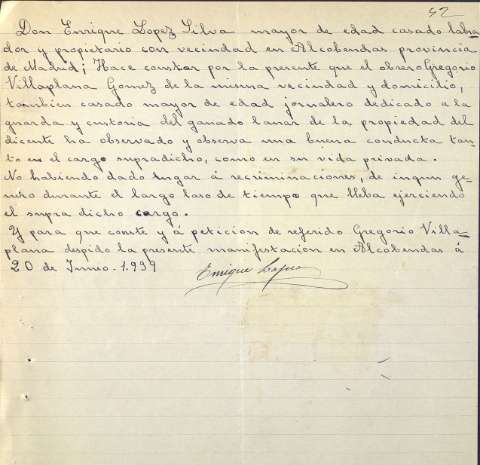 42
Don Enrique Lopez Silva mayor de edad casado labra
dor y propietario con vecindad en Alcobendas provincia
de Madrid; Hace constar por la presente que el obrero Gregorio
Villaplana Gomez de la misma vecindad y domicilio,
tambien casado mayor de edad jornalero dedicado a la
guarda y custoria del ganado lanar de la propiedad del
dicente ha observado y observa una buena conducta tan-
to en el cargo supradicho, como en su vida privada.
No habiendo dado lugar á recriminaciones, de ingun ge-
nero durante el largo laso de tiempo que lleba ejerciendo
el supra dicho cargo.
Y para que conste y á peticion de referido Gregorio Villa-
plana despido la presente manifestacion en Alcobendas á
20 de Juneo. 1.939
Enrique Lopez